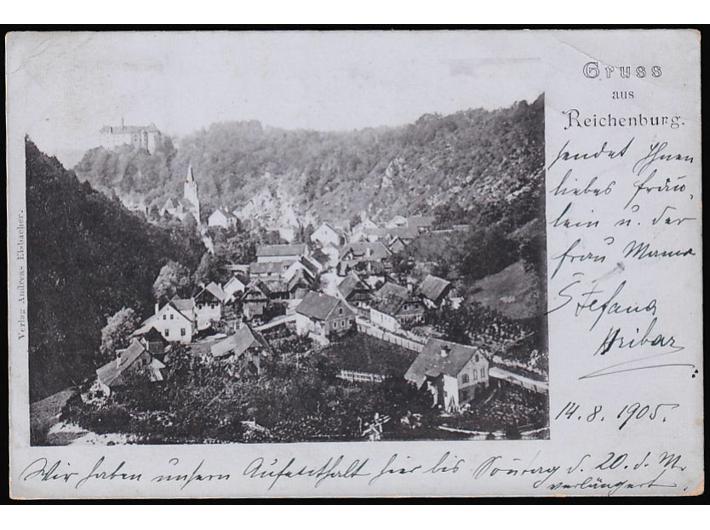 Gruss
aus
Reichenburg.
sendet Ihnen
liebes Fräu-
lein u. der
Frau Mama
Stefana
Hribar
14. 8. 1905.
Wir haben unsern Aufenthalt hier bis Sonntag d. 20. d. M.
verlängert.
Verlag Andreas Elsbacher.